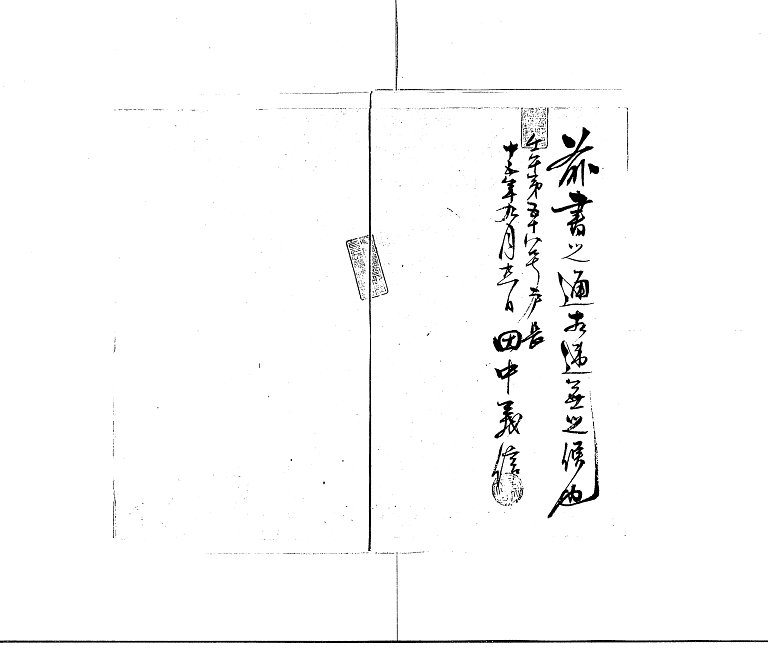 前書之通相違無之候也
壬午第五十八号 戸長
十五年九月十一日 田中義信